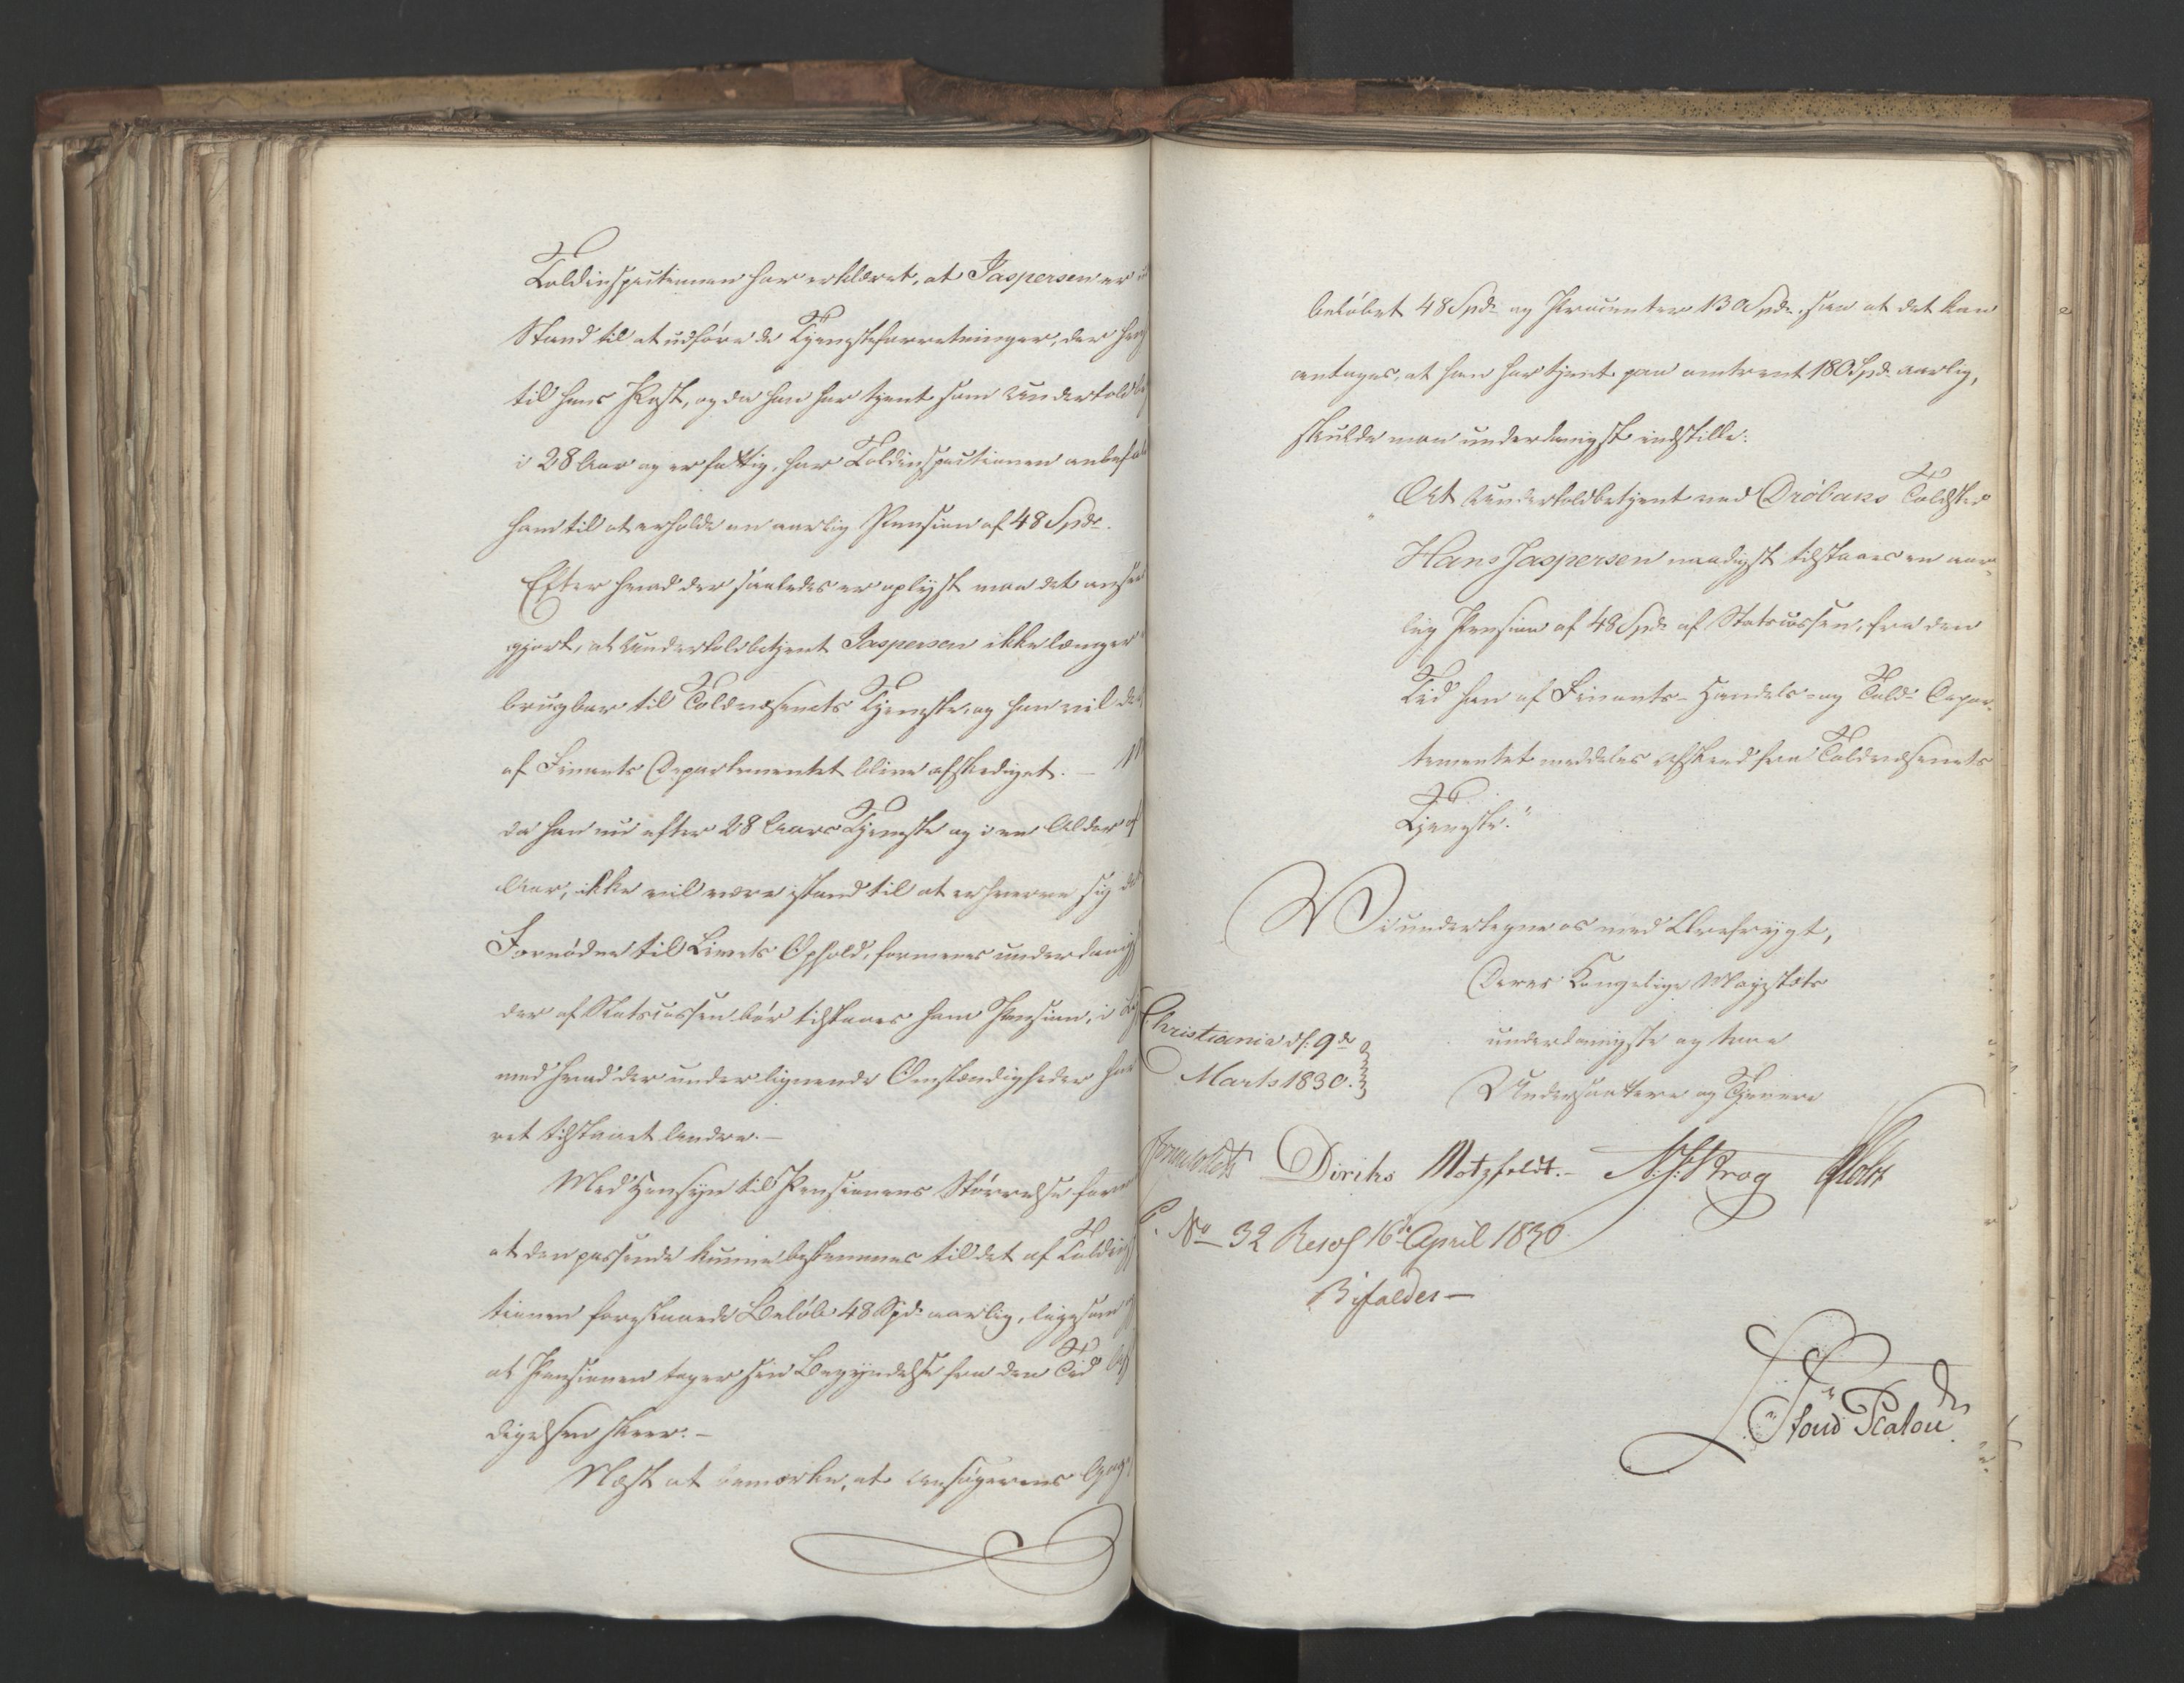 Toldinspectionen har erklæret, at Jaspersen er
Stand til at udføre de Tjenesteforretninger, der hen
til hans Post, og da han har tjent som Undertoldbe
i 28 Aar og er fattig, har Toldinspectionen anbefal
ham til at erholde en aarlig Pension af 48 Spd.
Efter hvad der saaledes er oplyst maa det ansees
gjort, at Undertoldbetjent Jaspersen ikke længer
brugbar til Toldvæsenets Tjeneste, og han vil der
af Finants Departementet blive afskediget. –
da han nu efter 28 Aars Tjeneste og i en Alder af
Aar, ikke vil være istand til at erhverve sig det
Fornødne til Livets Ophold, formenes underdanigst
der af Statscassen bør tilstaaes ham Pension, i
med hvad der under lignende Omstændigheder har
vet tilstaaet Andre. –
Med Hensyn til Pensionens Størrelse form
at den passende kunne bestemmes til det af Toldinspec
tionen foreslaaede Beløb 48 Spd. aarlig, ligesom
at Pensionen tager sin Begyndelse fra den Tid Afs
digelsen skeer. –
Næst at bemærke, at Ansøgerens Gage
beløbet 48 Spd. og Procenter 130 Spd., saa at det kan
antages, at han har tjent paa omtrent 180 Spd. aarlig,
skulde man underdanigst indstille:
„At Undertoldbetjent ved Drøbaks Toldsted
Hans Jaspersen naadigst tilstaaes en aar-
lig Pension af 48 Spd. af Statscassen, fra den
Tid han af Finants- Handels- og Told- Depar-
tementet meddeles Afsked fra Toldvæsenets
Tjeneste."
Vi undertegne os med Ærefrygt,
Deres Kongelige Majestæts
underdanigste og troe
Undersaatter og Tjenere
Christiania d. 9de
Marts 1830.
Diriks Motzfeldt. – Krog Holst
No 32 Resol 16de April 1830
Bifaldes –